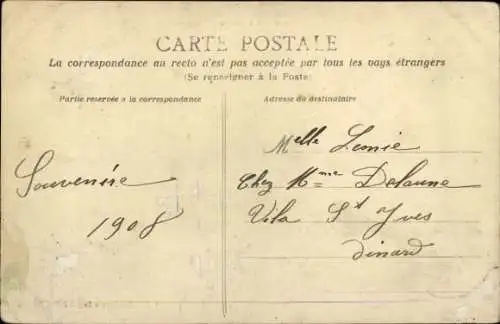 CARTE POSTALE
La correspondance au recto n'est pas acceptée par tous les pays étrangers
(Se renseigner à la Poste)
Partie réservée à la correspondance
Adresse du destinataire
Melle
Souvenire
1908
Chez Mme Delaune
Vila St Yves
dinard